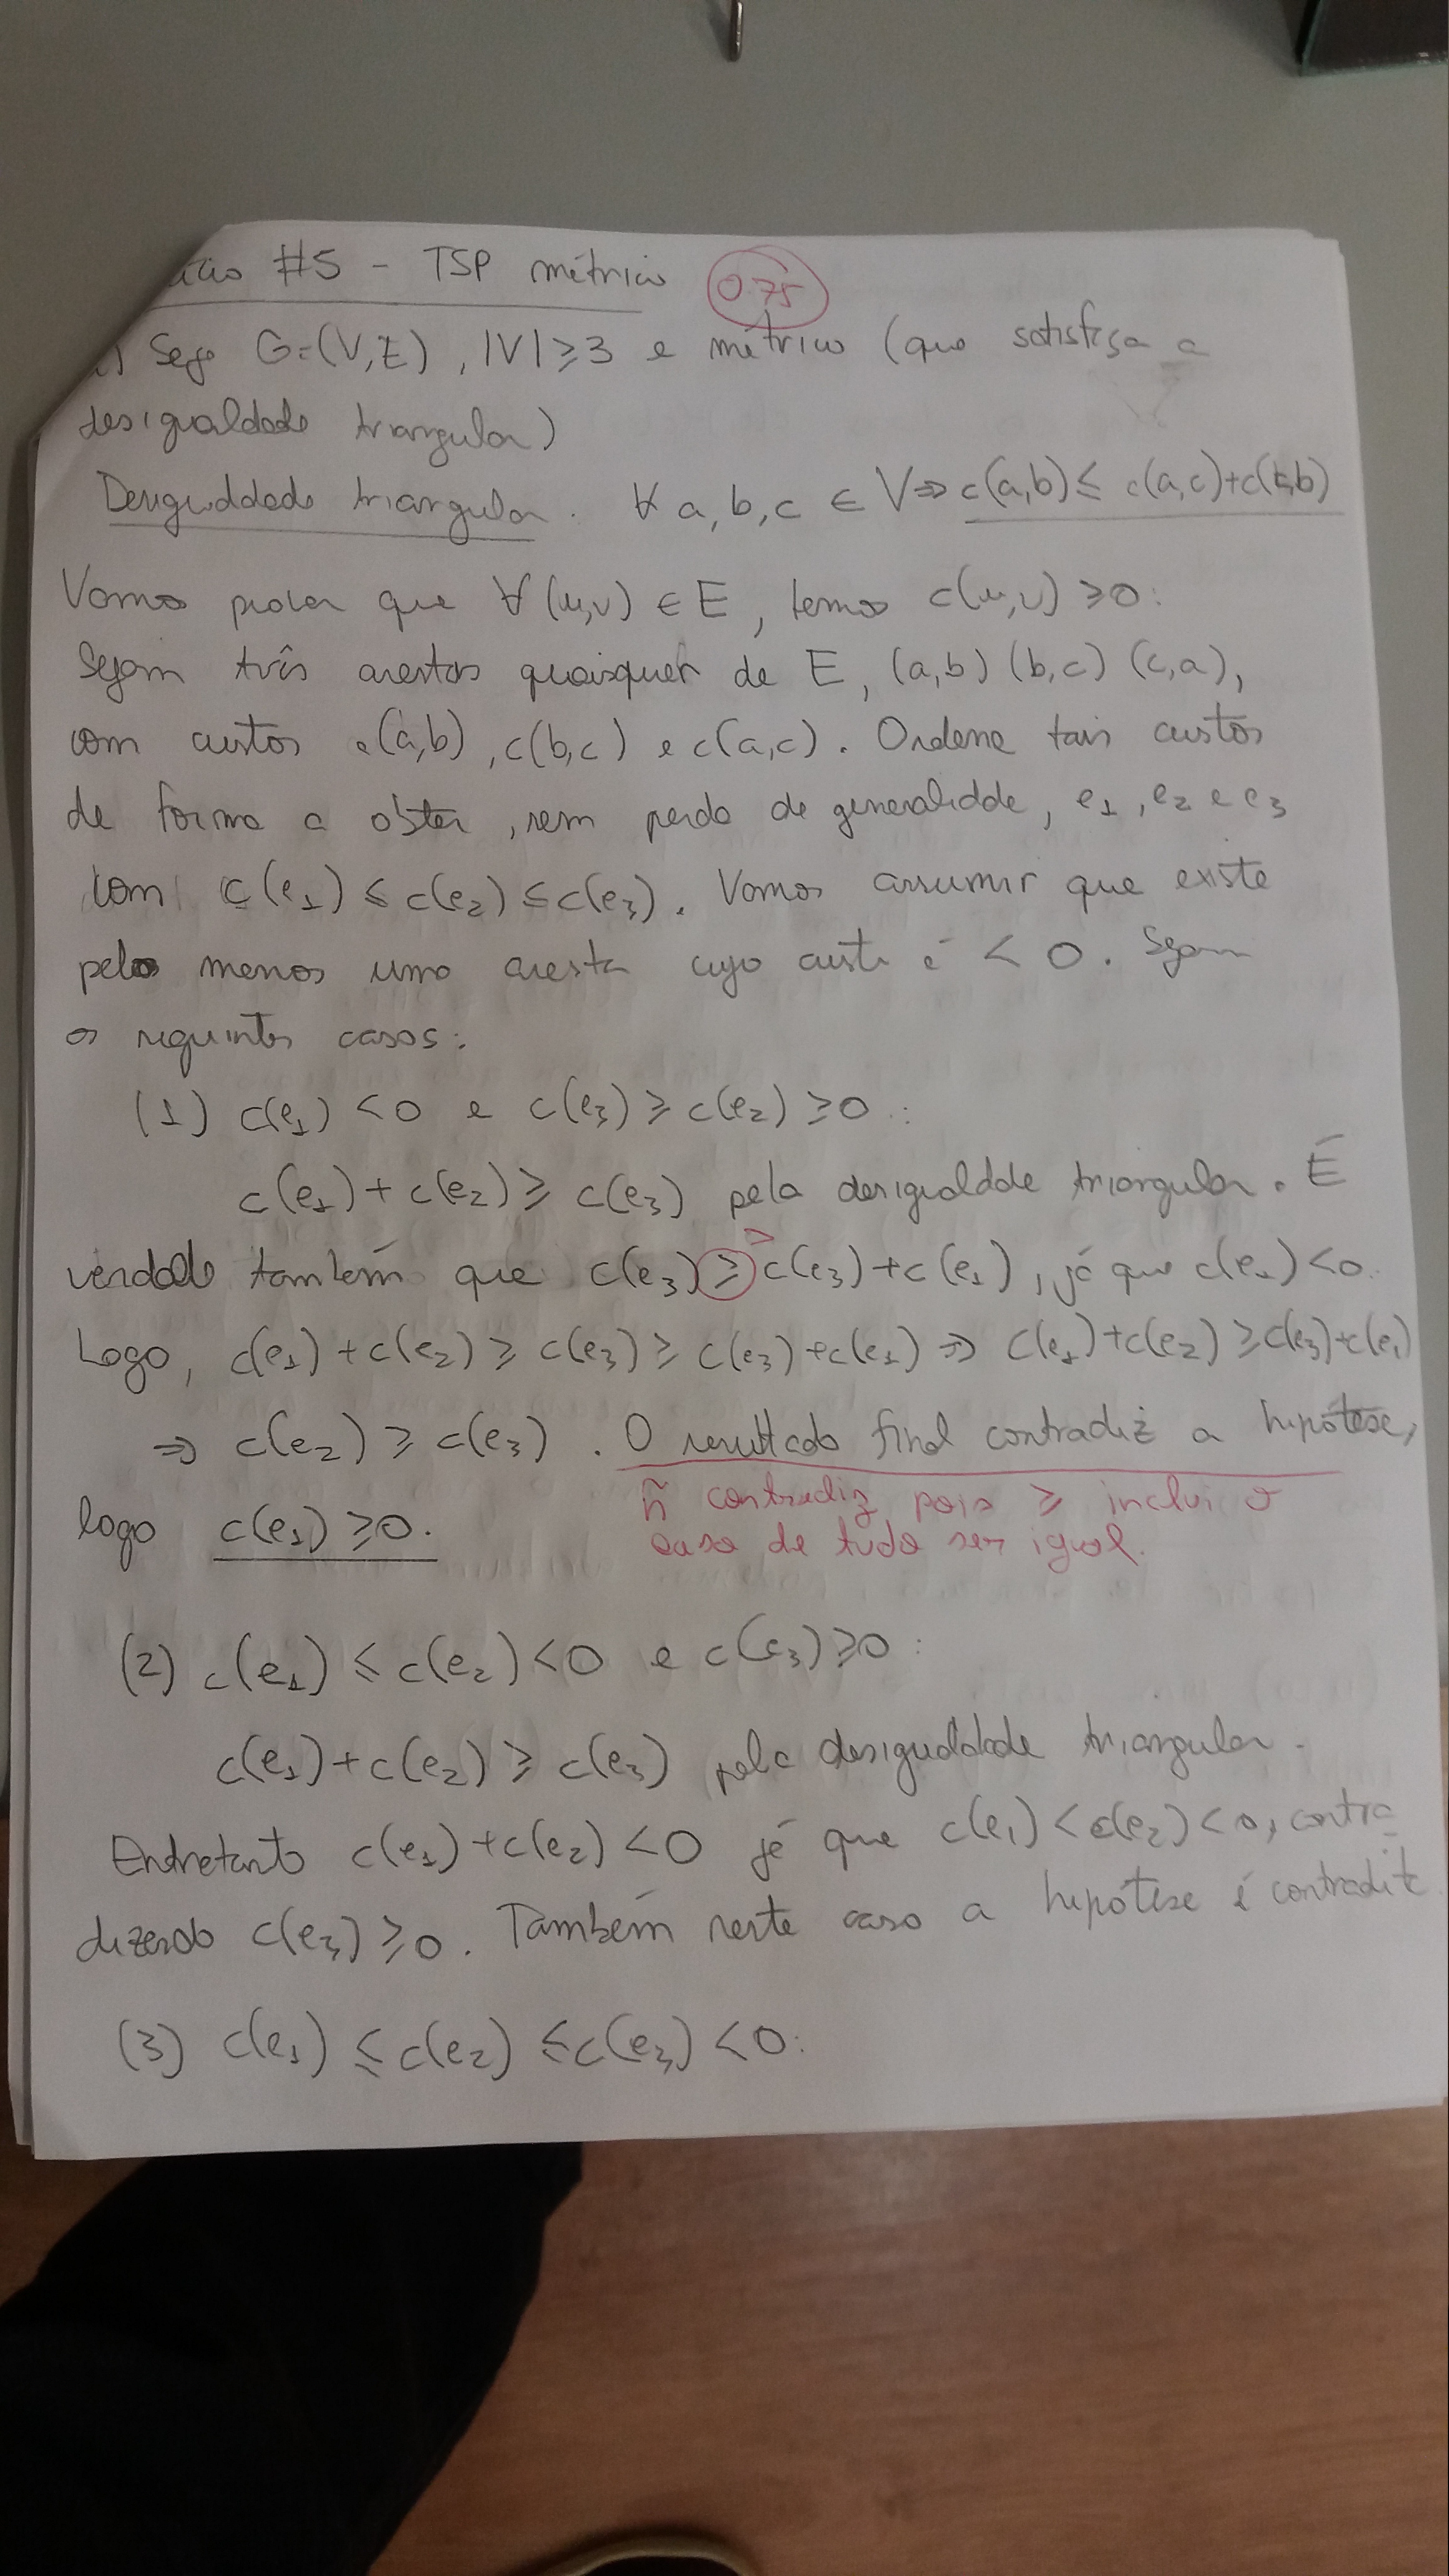 #5 - TSP métrico 0.75
Seja G=(V,E), |V|≥3 e métrico (que satisfaça a
desigualdade triangular)
Desigualdade triangular. ∀ a,b,c ∈ V ⇒ c(a,b) ≤ c(a,c)+c(c,b)
Vamos provar que ∀(u,v) ∈ E, temos c(u,v) ≥0:
Sejam três arestas quaisquer de E, (a,b) (b,c) (c,a),
com custos c(a,b), c(b,c) e c(a,c). Ordene tais custos
de forma a obter, sem perda de generalidde, e1, e2 e e3
com c(e1) ≤ c(e2) ≤ c(e3). Vamos assumir que existe
pelo menos uma aresta cujo custo é < 0. Sejam
os seguintes casos:
(1) c(e1) <0 e c(e3) ≥ c(e2) ≥0:
c(e1) + c(e2) ≥ c(e3) pela desigualdade triangular. É
>
verdade também que c(e3) ≥ c(e3) + c(e1), já que c(e1) <0.
Logo, c(e1) + c(e2) ≥ c(e3) ≥ c(e3) + c(e1) ⇒ c(e1) + c(e2) ≥ c(e3)+c(e1)
⇒ c(e2) ≥ c(e3). O resultado final contradiz a hipótese,
ñ contradiz pois ≥ inclui o
logo c(e1) ≥0.
caso de tudo ser igual.
(2) c(e1) ≤ c(e2) <0 e c(e3) ≥0:
c(e1)+c(e2) ≥ c(e3) pela desigualdade triangular.
Entretanto c(e1) +c(e2) <0 já que c(e1) < c(e2) <0, contra
dizendo c(e3) ≥0. Também neste caso a hipótese é contradit
(3) c(e1) ≤ c(e2) ≤ c(e3) <0: